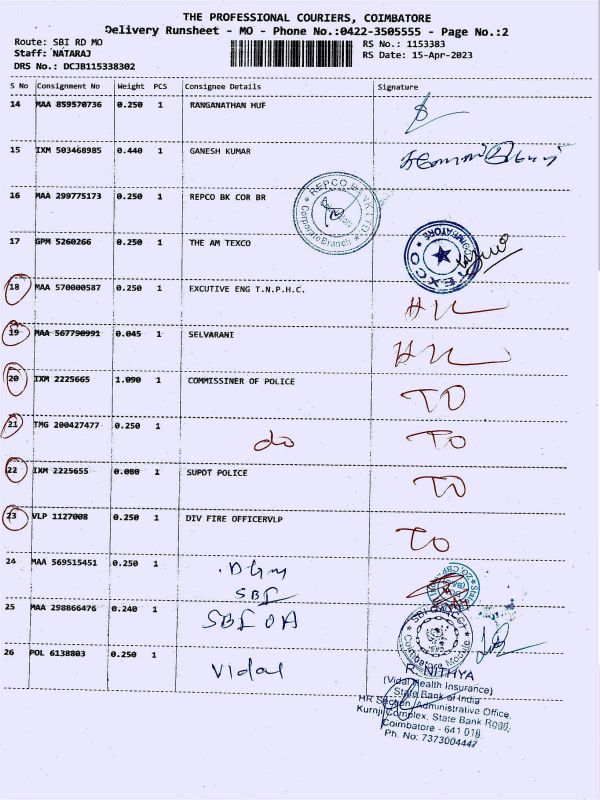 THE PROFESSIONAL COURIERS, COIMBATORE
Delivery Runsheet - MO - Phone No.:0422-3505555 - Page No.:2
Route: SBI RD MO RS No.: 1153383
Staff: NATARAJ RS Date: 15-Apr-2023
DRS No.: DCJB115338302
S No Consignment No Weight PCS Consignee Details Signature
14 MAA 859570736 0.250 1 RANGANATHAN HUF
15 IXM 503468985 0.440 1 GANESH KUMAR
16 MAA 299775173 0.250 1 REPCO BK COR BR
REPCO BANK LTD
Corporate Branch
17 GPM 5260266 0.250 1 THE AM TEXCO
COIMBATORE
18 MAA 570000587 0.250 1 EXCUTIVE ENG T.N.P.H.C.
19 MAA 567790991 0.045 1 SELVARANI
20 IXM 2225665 1.090 1 COMMISSINER OF POLICE TO
21 TMG 200427477 0.250 1 do TO
22 IXM 2225655 0.080 1 SUPDT POLICE TO
23 VLP 1127008 0.250 1 DIV FIRE OFFICERVLP TO
24 MAA 569515451 0.250 1
SBI
25 MAA 298866476 0.240 1 SBI OA
26 POL 6138803 0.250 1 Vidal
R. NITHYA
(Vidal Health Insurance)
State Bank of India
HR Section, Administrative Office,
Kurnji Complex, State Bank Road,
Coimbatore - 641 018.
Ph. No: 7373004447